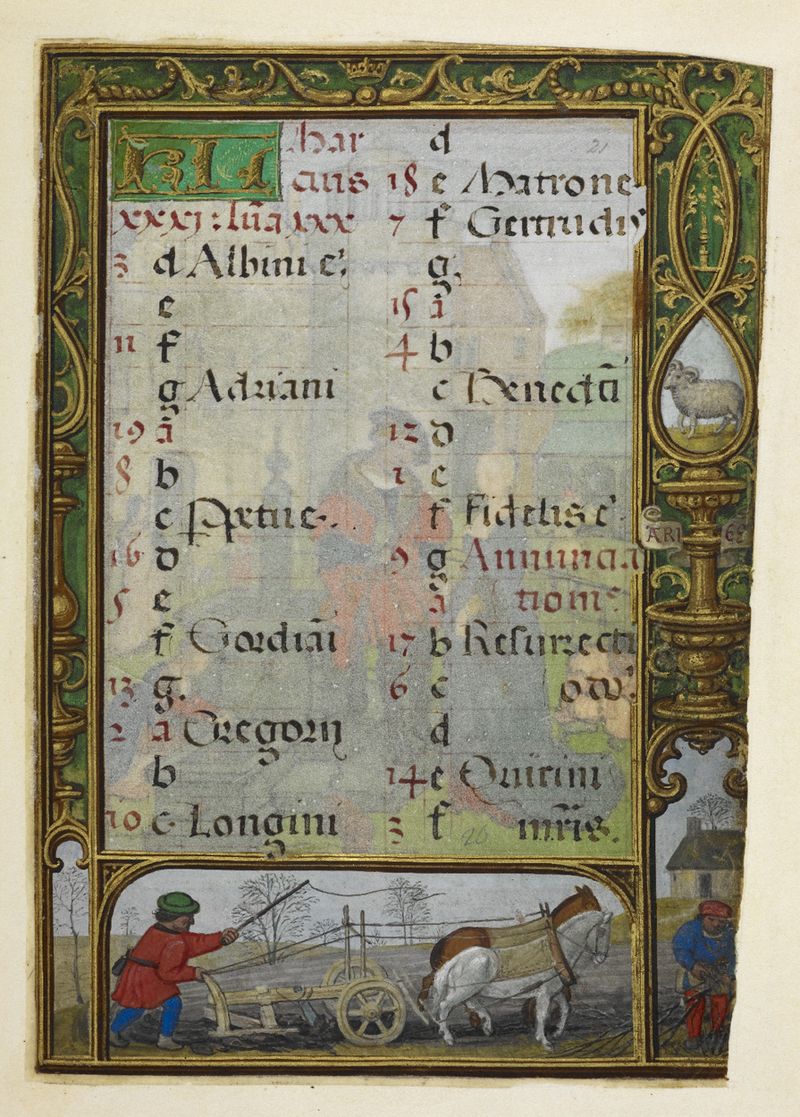 KL Mar
cius
xxxj : lũa xxx
3 d Albini e.ꝰ
e
11 f
g Adriani
19 a
8 b
c Pꝑetue.
16 d
5 e
f Gordiãi
13 g.
2 a Gregorij
b
10 c Longini
d
18 e Matrone
7 f Gertrudis
g.
15 a
4 b
c Benedcti
12 d
1 e
f Fidelis e.ꝰ
9 g Annuncia
a tiom
17 b Resurrecti
6 c o dñi
d
14 e Quirini
3 f mr̃is.
ARI ES
21
26